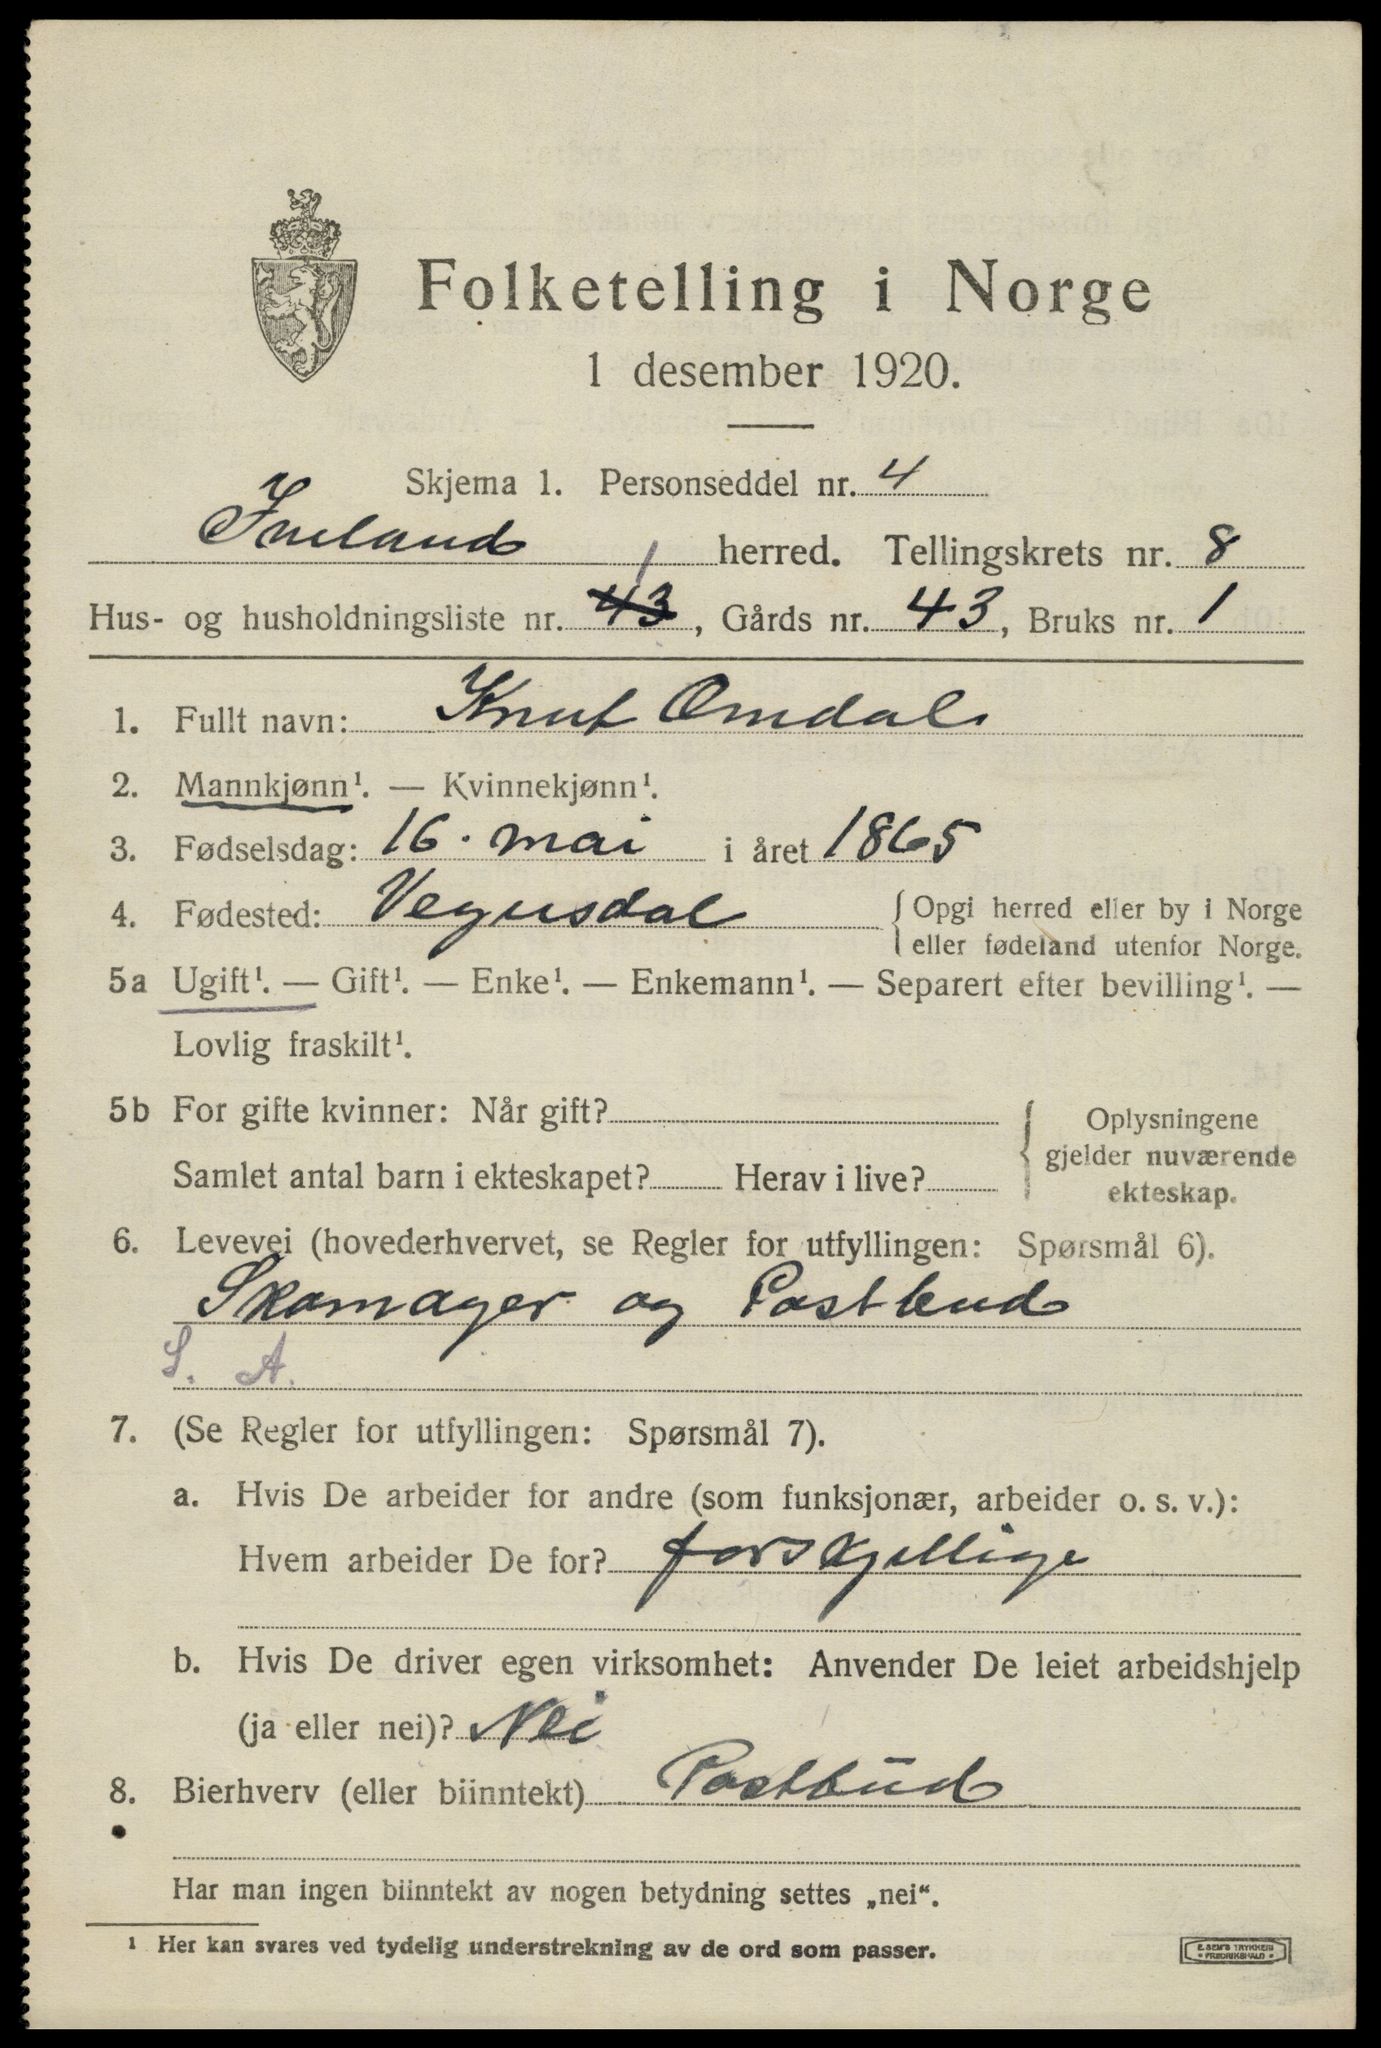 Folketelling i Norge
1 desember 1920.
Skjema 1. Personseddel nr. 4
Iveland herred. Tellingskrets nr. 8
1
Hus- og husholdningsliste nr. 43, Gårds nr. 43, Bruks nr. 1
1. Fullt navn: Knut Omdal
2. Mannkjønn¹. — Kvinnekjønn¹.
3. Fødselsdag: 16. mai i året 1865
4. Fødested: Vegusdal { Opgi herred eller by i Norge
eller fødeland utenfor Norge.
5a Ugift¹. — Gift¹. — Enke¹. — Enkemann¹. — Separert efter bevilling¹. —
Lovlig fraskilt¹.
5b For gifte kvinner: Når gift? { Oplysningene
gjelder nuværende
Samlet antal barn i ekteskapet? Herav i live?
ekteskap.
6. Levevei (hovederhvervet, se Regler for utfyllingen: Spørsmål 6).
Skomager og Postbud
S. A.
7. (Se Regler for utfyllingen: Spørsmål 7).
a. Hvis De arbeider for andre (som funksjonær, arbeider o. s. v.):
Hvem arbeider De for? forskjellige
b. Hvis De driver egen virksomhet: Anvender De leiet arbeidshjelp
(ja eller nei)? Nei
8. Bierhverv (eller biinntekt) Postbud
Har man ingen biinntekt av nogen betydning settes „nei“.
¹ Her kan svares ved tydelig understrekning av de ord som passer.
E. SEM'S TRYKKERI
FREDRIKSHALD